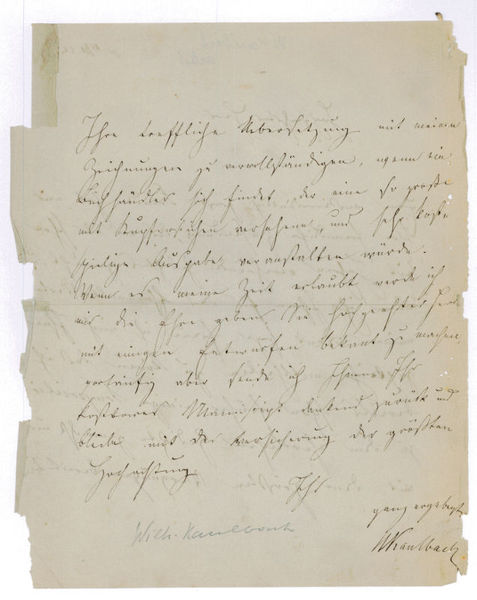 Ihre treffliche Uebersetzung mit meinen
Zeichnungen zu vervollständigen, wenn ein
Buchhändler sich findet der eine so große
mit Kupferstichen versehene, und sehr kost-
spielige Ausgabe veranstalten würde.
Wenn es meine Zeit erlaubt werde ich
mir die Ehre geben Sie hochgeehrter
mit einigen Entwürfen bekant zu machen
vorläufig aber sende ich Ihnen Ihr
kostbares Manuscript dankend zurück und
bleibe mit der Versicherung der größten
Hochachtung
Ihr
ganz ergebenst
WKaulbach
Wilh. Kaulbach